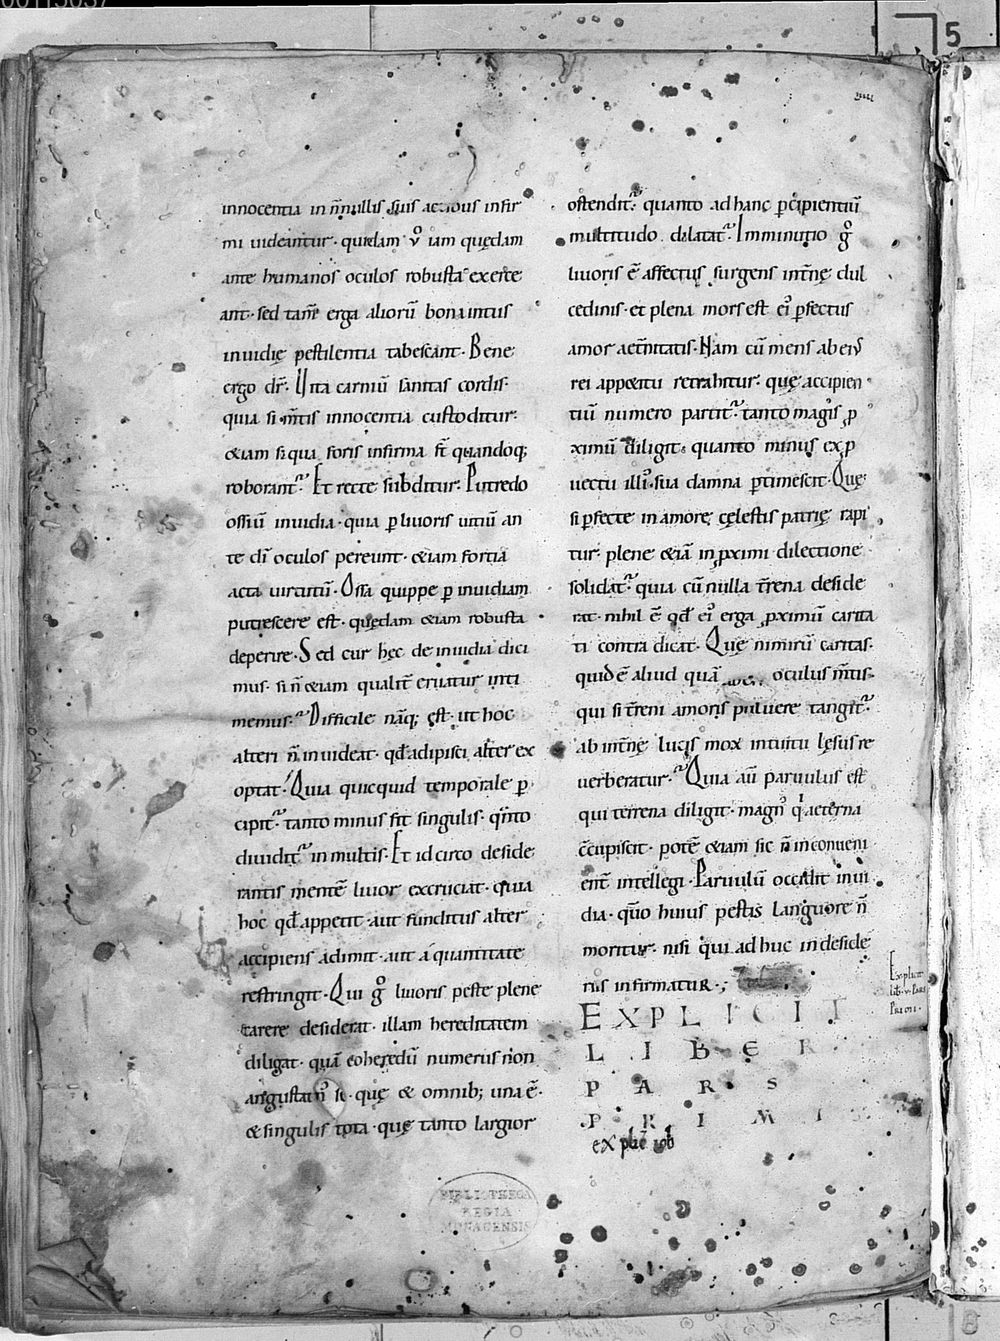 innocentia in ñnullis suis actious infir
mi uideantur · quędam ů iam quędam
ante humanos oculos robusta exerce
ant · sed tam̄ erga alioru᷒ bona intus
inuidię pestilentia tabescant · Bene
ergo dr̄ · Uita carniū sanitas cordis ·
quia si m̄tis innocentia custoditur ·
&iam siqua foris infirma st̄ quandoq;
roborant᷒ · Et recte subditur · Putredo
ossiū inuidia · quia p liuoris uitiū an
te dī oculos pereunt · &iam fortia
acta uirtutū · Ossa quippe p inuidiam
putrescere est · quędam &iam robusta
deperire · Sed cur hęc de inuidia dici
mus · si ñ &iam qualit̄ eruatur inti
memus · Difficile nāq; ęst · ut hoc
alteri ñ inuideat · qđ adipisci alter ex
optat · Quia quicquid temporale p
cipit᷒ · tanto minus fit singulis · q̄nto
diuidit᷒ in multis · Et idcirco deside
rantis mentē liuor excruciat · quia
hoc qđ appetit · aut funditus alter
accipiens adimit · aut a quantitate
restringit · Qui g̊ liuoris peste plene
carere desiderat · illam hereditatem
diligat · quā coheredū numerus non
angustat · quę & omnib; una ē ·
& singulis tota · quę tanto largior
ostendit᷒ · quanto ad hanc pcipientiū
multitudo dilatat᷒ · Imminutio g̊
liuoris ē affectus surgens int̄nę dul
cedinis · et plena mors est ei᷒ pfectus
amor aet̄nitatis · Nam cū mens ab ei᷒
rei appetitu retrahitur · quę accipien
tiū numero partit᷒ · tanto magis p
ximū diligit · quanto minus ex p
uectu illi᷒ · sua damna ptimescit · Quę
si pfecte in amore cęlestis patrię rapi
tur · plene &iā in pximi dilectione
solidat᷒ · quia cū nulla t̄rena deside
rat · nihil ē qđ ei᷒ erga pximū carita
ti contra dicat · Quę nimirū caritas ·
quid ē aliud quā oculus m̄tis ·
qui si t̄reni amoris puluere tangit᷒ ·
ab int̄nę lucis mox intuitu lęsus re
uerberatur · Quia aū paruulus est
qui terrena diligit · magn᷒ q̇ aeterna
c̄cupiscit · potē &iam sic ñ inconueni
ent̄ intellegi · Paruulū occidit inui
dia · quo huius pestis languore ñ
moritur · nisi qui ad huc in deside
riis infirmatur · ;
EXPLICIT
LIBER
PARS
PRIMI
explic̄ iob
Explicit
lib · v · Pars
Primi ·
BIBLIOTHECA
REGIA
MONACENSIS
5